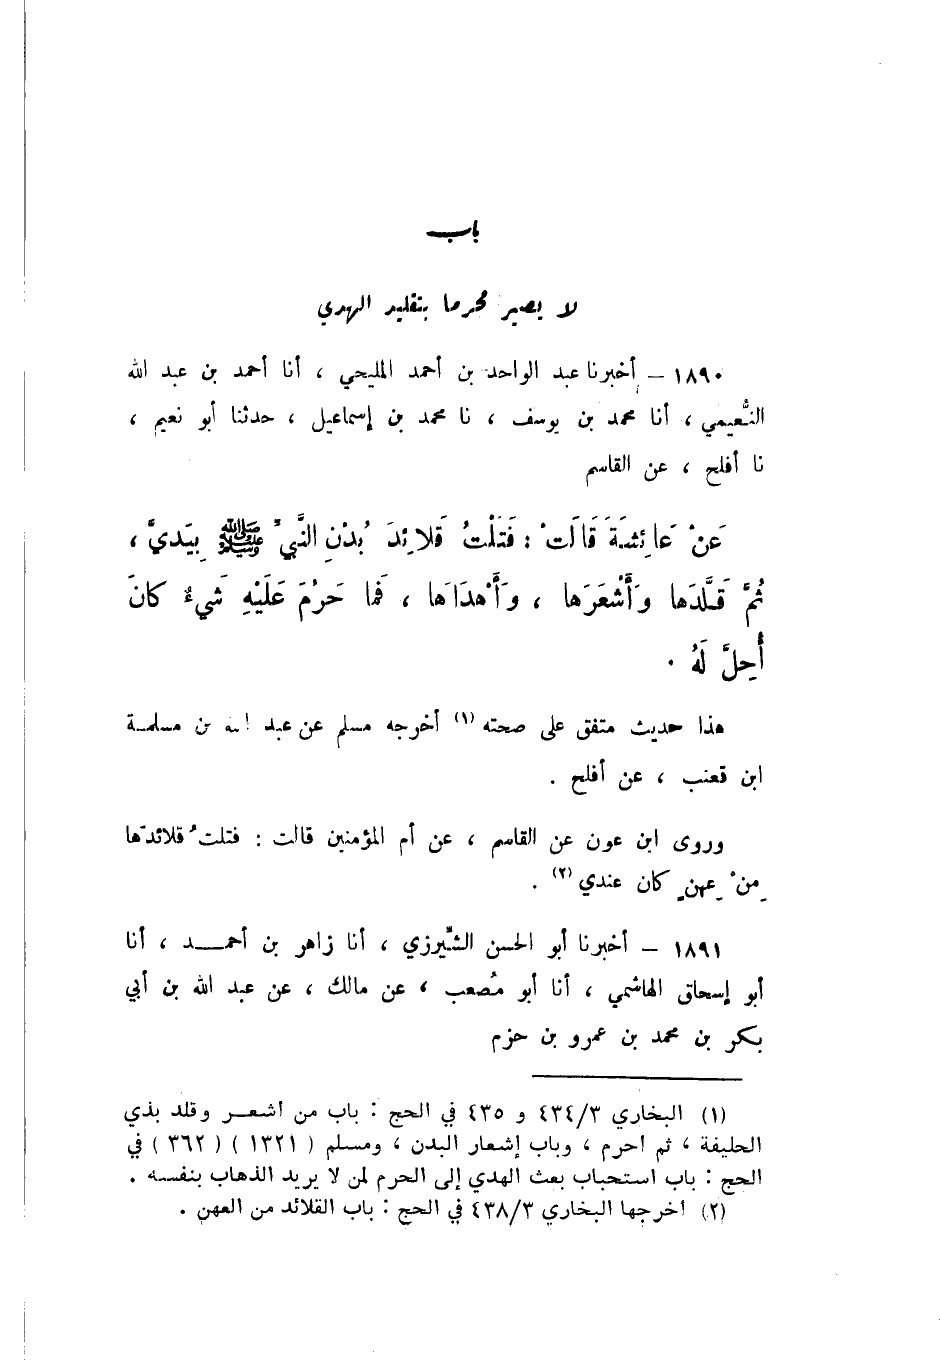 باب
لا يصير محرما بتقليد الهدي
١٨٩٠ – أخبرنا عبد الواحد بن أحمد المليحي ، أنا أحمد بن عبد الله
النُّعيمي ، أنا محمد بن يوسف ، نا محمد بن إسماعيل ، حدثنا أبو نعيم ،
نا أفلح ، عن القاسم
عَنْ عَائِشَةَ قَالَتْ : فَتَلْتُ قَلائِدَ بُدْنِ النَّبِيِّ ﷺ بِيَدَيَّ ،
ثُمَّ قَلَّدَها وَأَشْعَرَها ، وَأَهْدَاها ، فَما حَرُمَ عَلَيْهِ شَيءٌ كانَ
أُحِلَّ لَهُ .
هذا حديث متفق على صحته (١) أخرجه مسلم عن عبد الله بن مسلمة
ابن قعنب ، عن أفلح .
وروى ابن عون عن القاسم ، عن أم المؤمنين قالت : فتلتُ قلائدَها
مِنْ عِهنٍ كان عندي (٢) .
١٨٩١ – أخبرنا أبو الحسن الشِّيرزي ، أنا زاهر بن أحمد ، أنا
أبو إسحاق الهاشمي ، أنا أبو مُصعب ، عن مالك ، عن عبد الله بن أبي
بكر بن محمد بن عمرو بن حزم
(١) البخاري ٤٣٤/٣ و ٤٣٥ في الحج : باب من أشعر وقلد بذي
الحليفة ، ثم أحرم ، وباب إشعار البدن ، ومسلم ( ١٣٢١ ) ( ٣٦٢ ) في
الحج : باب استحباب بعث الهدي إلى الحرم لمن لا يريد الذهاب بنفسه .
(٢) أخرجها البخاري ٤٣٨/٣ في الحج : باب القلائد من العهن .